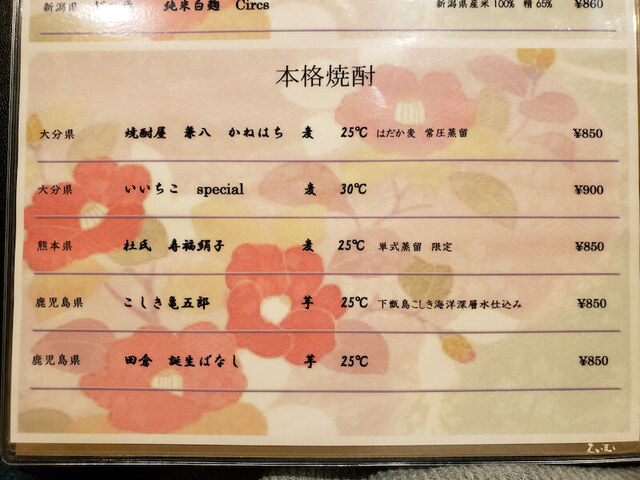 新潟県 純米白麹 Circs 新潟県産米100% 精65% ¥860
本格焼酎
大分県 焼酎屋 兼八 かねはち 麦 25℃ はだか麦 常圧蒸留 ¥850
大分県 いいちこ special 麦 30℃ ¥900
熊本県 杜氏 寿福絹子 麦 25℃ 単式蒸留 限定 ¥850
鹿児島県 こしき亀五郎 芋 25℃ 下甑島こしき海洋深層水仕込み ¥850
鹿児島県 田倉 誕生ばなし 芋 25℃ ¥850